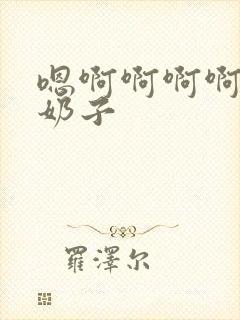 嗯啊啊啊啊
奶子
羅澤尔